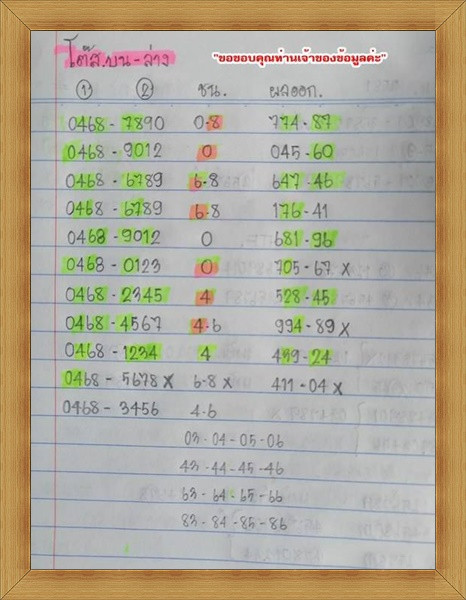 โต๊ส.บน-ล่าง
"ขอขอบคุณท่านเจ้าของข้อมูลค่ะ"
① ② ชน. ผลออก.
0468-7890 0-8 774-87
0468-9012 0 045-60
0468-6789 6-8 647-46
0468-6789 6-8 176-41
0468-9012 0 681-96
0468-0123 0 705-67 x
0468-2345 4 528-45
0468-4567 4-6 994-89 x
0468-1234 4 459-24
0468-5678 x 6-8 x 411-04 x
0468-3456 4-6
03-04-05-06
43-44-45-46
63-64-65-66
83-84-85-86